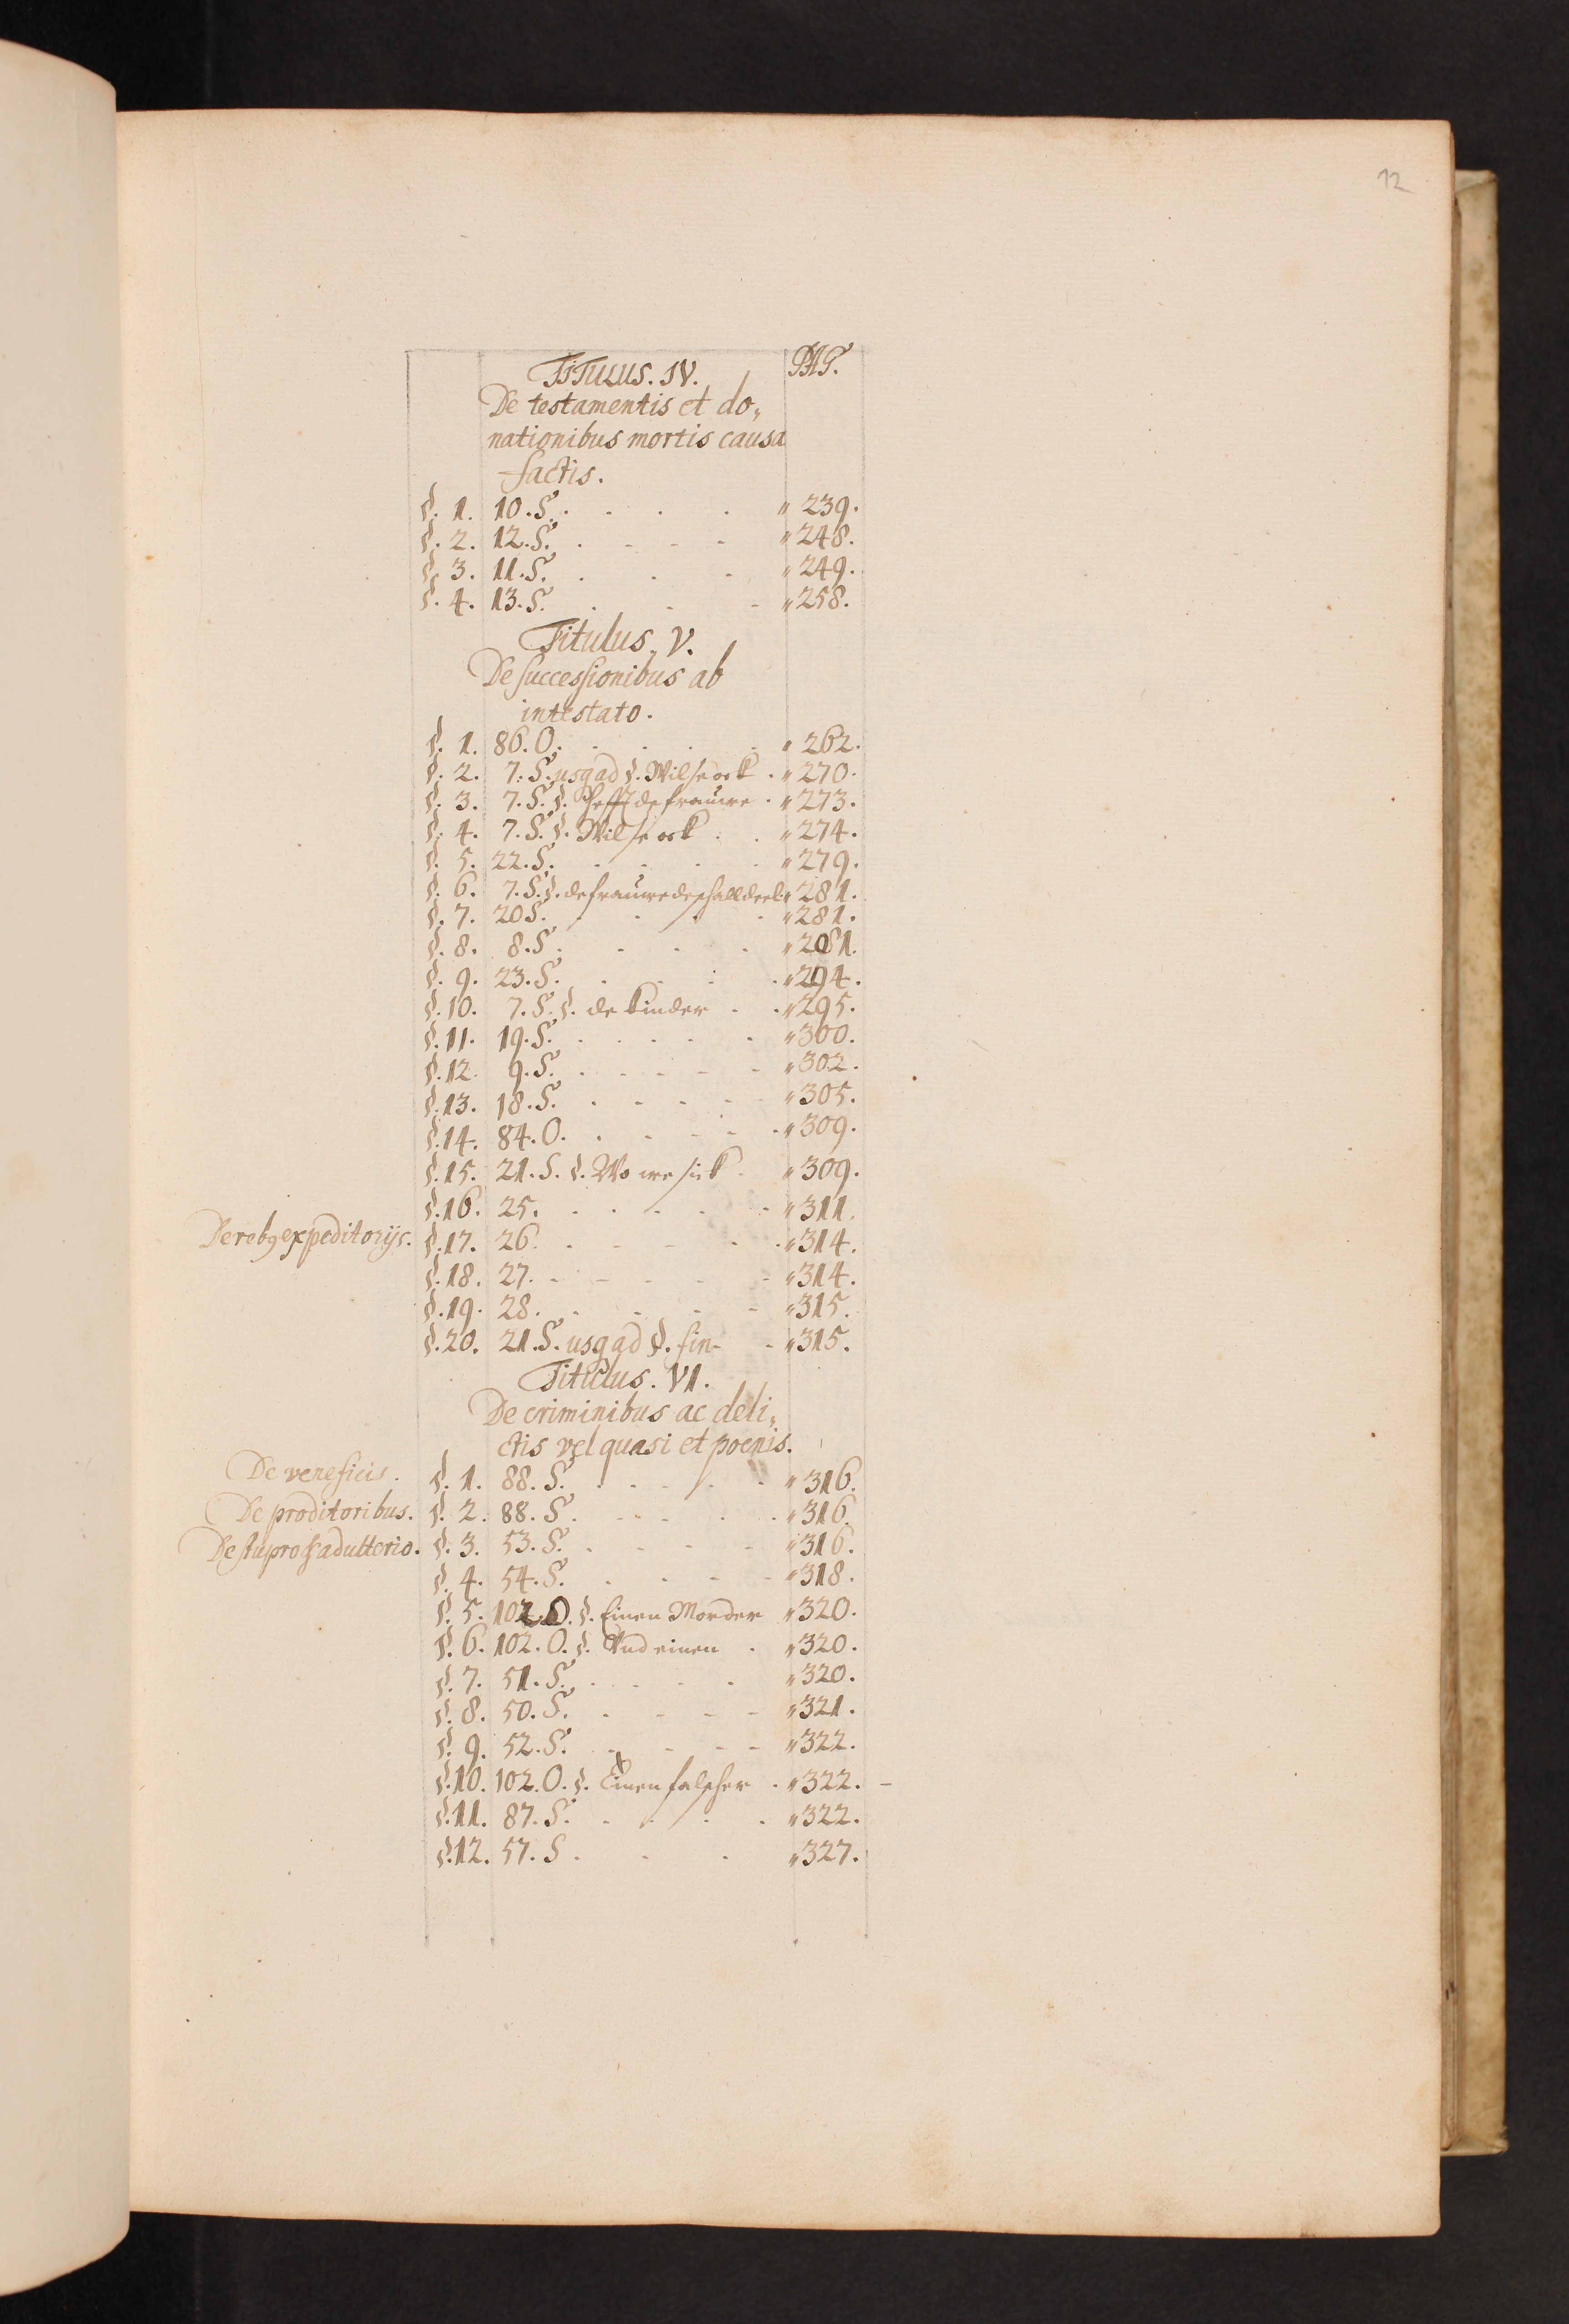 12
TITULUS. IV. PAG.
De testamentis et do„
nationibus mortis causa
factis.
§. 1. 10. S. . . . . „ 239.
§. 2. 12. S. . . . . „ 248.
§. 3. 11. S. . . . „ 249.
§. 4. 13. S. . . . „ 258.
Titulus. V.
De successionibus ab
intestato.
§. 1. 86. O. . . . . „ 262.
§. 2. 7. S. usq ad §. Wilk ock . „ 270.
§. 3. 7. S. §. Hefft de frauwe . „ 273.
§. 4. 7. S. §. Wil se ock . . „ 274.
§. 5. 22. S. . . . . „ 279.
§. 6. 7. S. §. de frauwe de halldeel „ 281.
§. 7. 20 S. . . . . „ 281.
§. 8. 8. S. . . . „ 281.
§. 9. 23. S. . . . . „ 294.
§. 10. 7. S. §. de kinder . . „ 295.
§. 11. 19. S. . . . . . „ 300.
§. 12. 9. S. . . . . . „ 302.
§. 13. 18. S. . . . . „ 305.
§. 14. 84. O. . . . . . „ 309.
§. 15. 21. S. §. Wo we sick . „ 309.
§. 16. 25. . . . . . „ 311.
De rebq expeditorijs. §. 17. 26. . . . . . „ 314.
§. 18. 27. . . . . . „ 314.
§. 19. 28. . . . . „ 315.
§. 20. 21. S. usq ad §. fin- - „ 315.
Titulus. VI.
De criminibus ac deli„
ctis vel quasi et poenis.
De veneficis. §. 1. 88. S. . . . . . „ 316.
De proditoribus. §. 2. 88. S. . . . . . „ 316.
De stupro & adulterio. §. 3. 53. S. . . . . „ 316.
§. 4. 54. S. . . . . „ 318.
§. 5. 102. O. §. Einen Morder „ 320.
§. 6. 102. O. §. Und einen . „ 320.
§. 7. 51. S. . . . . „ 320.
§. 8. 50. S. . . . . „ 321.
§. 9. 52. S. . . . . „ 322.
§. 10. 102. O. §. Einen falscher . „ 322. -
§. 11. 87. S. . . . . „ 322.
§. 12. 57. S . . . „ 327.